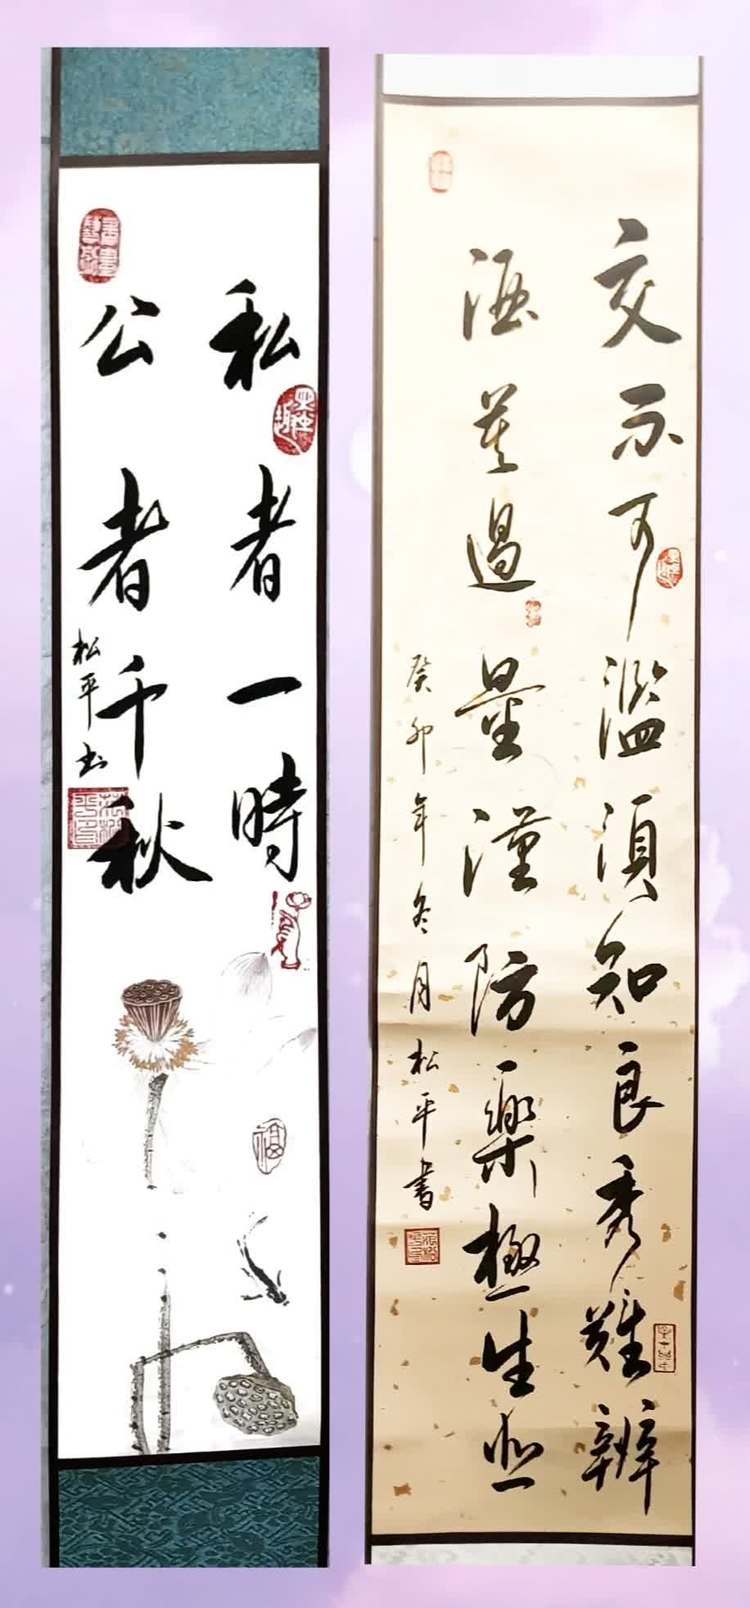 私者一時
公者千秋
松平书
福
交不可濫須知良秀難辨
酒莫過量謹防樂極生悲
癸卯年冬月松平書